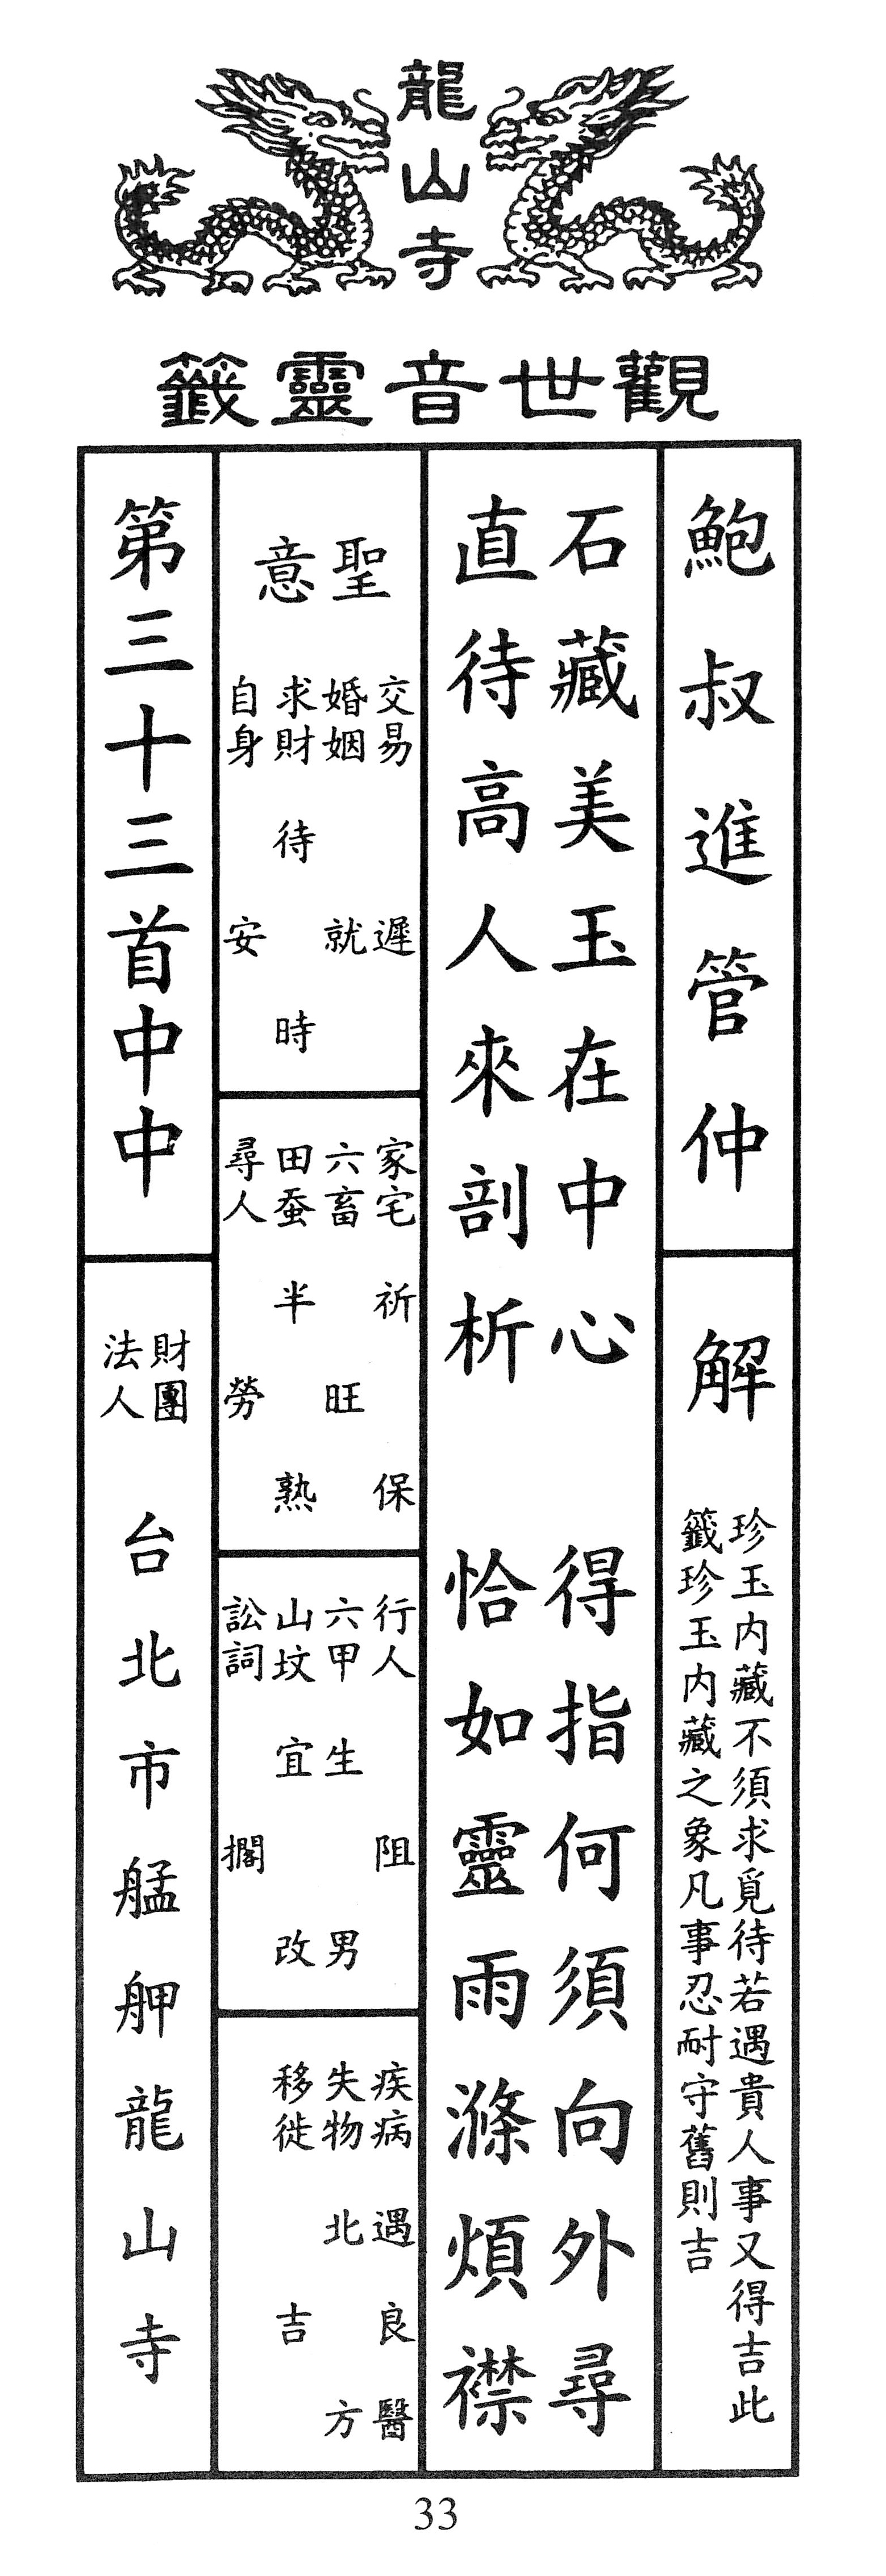 龍山寺
觀世音靈籤
鮑叔進管仲
解
珍玉内藏不須求覓待若遇貴人事又得吉此
籤珍玉内藏之象凡事忍耐守舊則吉
石藏美玉在中心 得指何須向外尋
直待高人來剖析 恰如靈雨滌煩襟
聖意
交易 遲
婚姻 就
求財 待時
自身 安
家宅 祈保
六畜 旺
田蚕 半熟
尋人 勞
行人 阻
六甲 生男
山坟 宜改
訟詞 擱
疾病 遇良醫
失物 北方
移徙 吉
第三十三首中中
財團
法人
台北市艋舺龍山寺
33